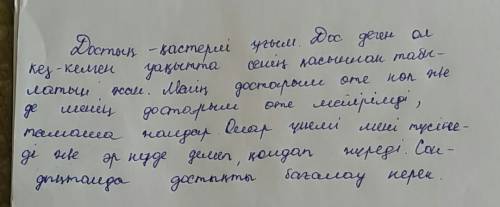 Достық - қастерлі ұғым. Дос деген ол
кез-келген уақытта сенің қасыннан табы-
латын жан. Менің достарым өте көп же
де менің достарым өте мейірімді,
тамаша жандар. Олар үнемі мені түсіне-
ді же әр кезде демеп, қолдап жүреді. Сон-
дықтанда достықты бағалау керек.